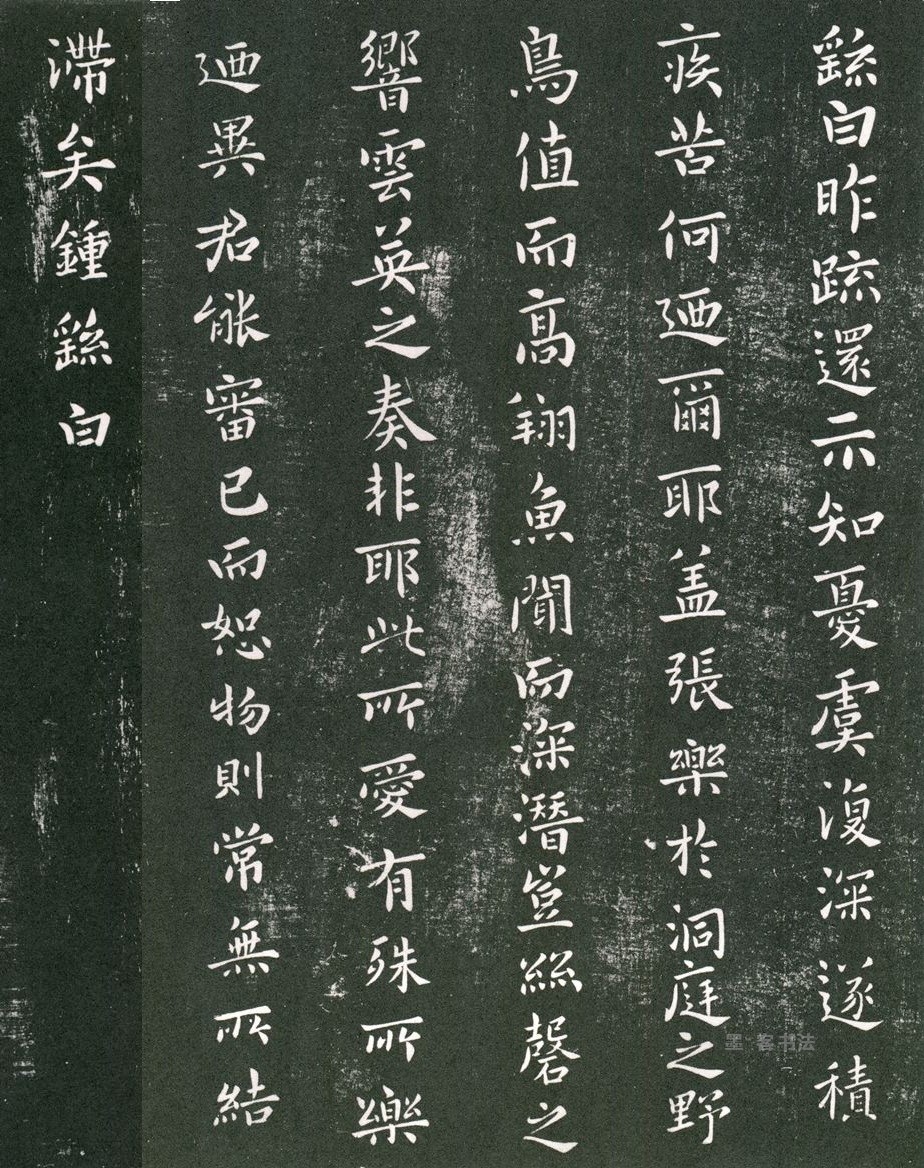 繇白昨疏還示知憂虞復深遂積
疾苦何迺爾耶蓋張樂於洞庭之野
鳥值而高翔魚聞而深潛豈絲磬之
響雲英之奏非耶此所愛有殊所樂
迺異君能審己而恕物則常無所結
滯矣鍾繇白
墨客书法